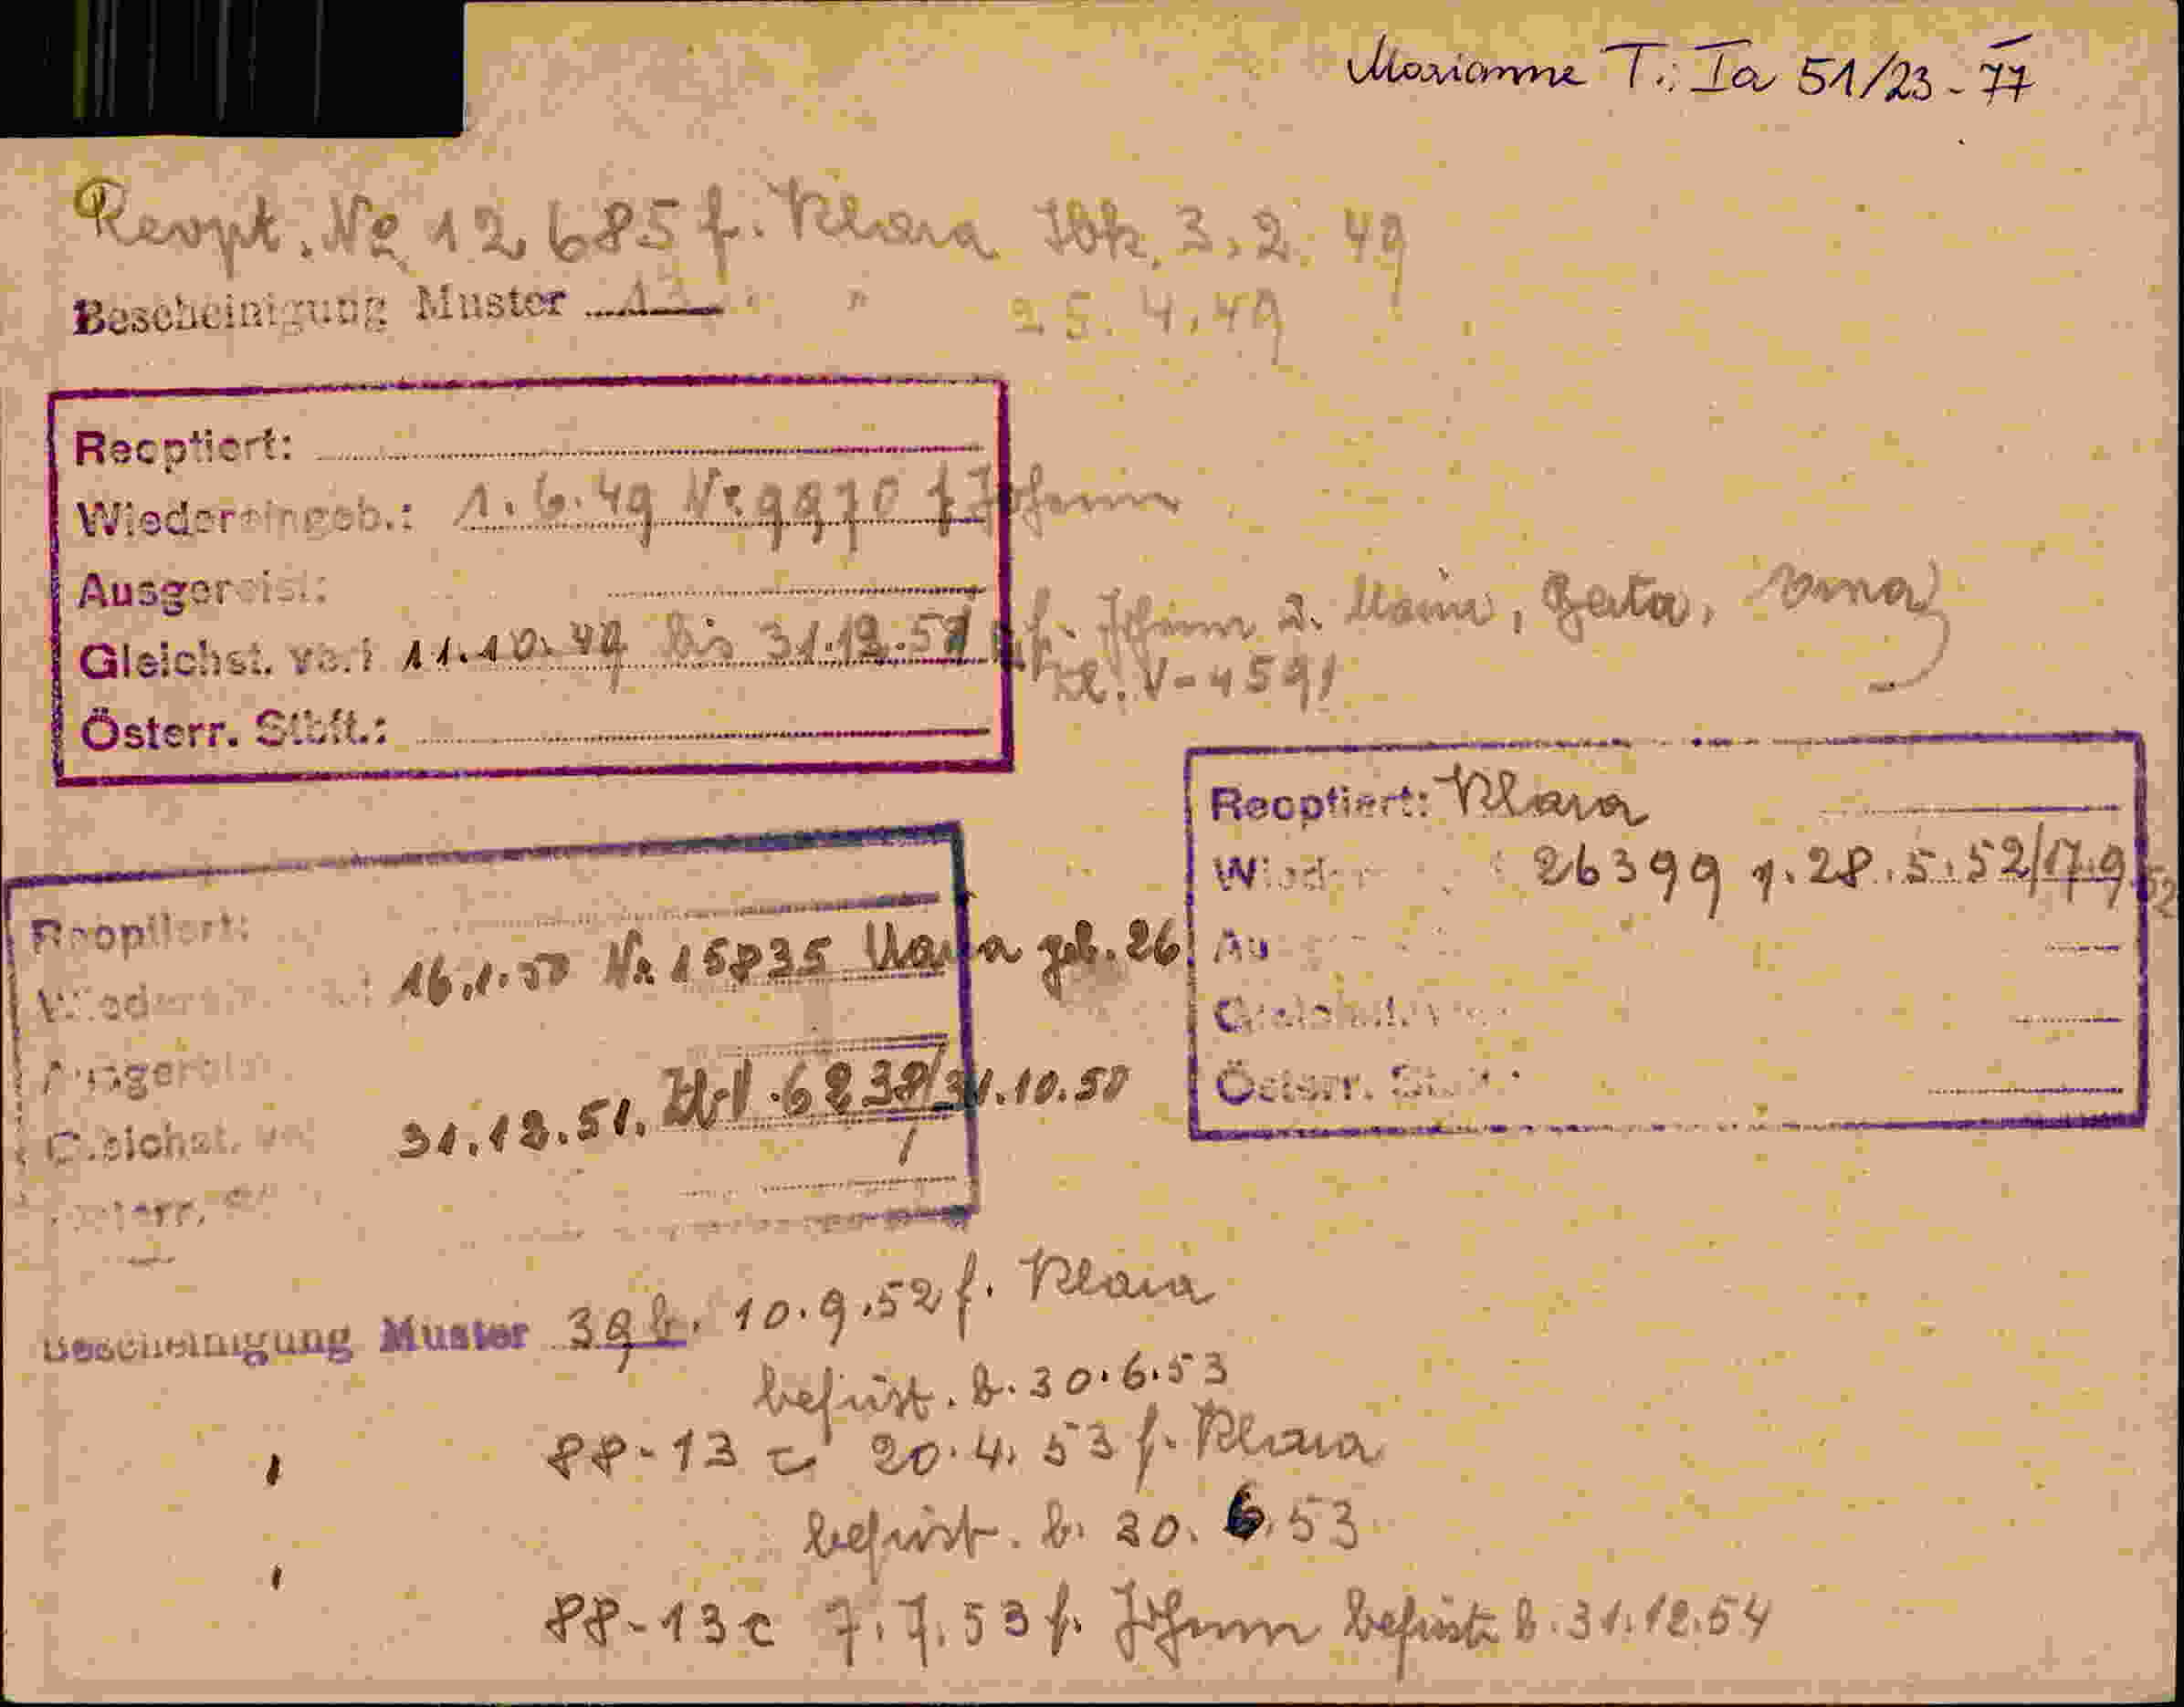 Marianne T.; Ia 51/23-77
Reopt. No 12685 f. Klara Ibk. 3.2.49
Bescheinigung Muster 13 " " 25.4.49
Reoptiert:
Wiedereingeb.: 1.6.49 Nr. 9970 f Johann
Ausgereist:
Gleichst. vo.: 11.10.49 bis 31.12.51 f. Johann 2. Maria, Berta, Irma
Zl. V-4591
Österr. Stbft.:
Reoptiert: Klara
Wieder : 26399 v. 28.5.52/17.9.52
Au
Gleichst. v
Österr. St
Reoptiert:
Wiederein : 16.1.50 Nr. 15835 Maria geb. 26
Ausgereist
Gleichst. vo 31.12.51. 6238/31.10.50
Österr. St
Bescheinigung Muster 39b. 10.9.52 f. Klara
befrist. b. 30.6.53
" 88-13 c 20.4.53 f. Klara
befrist. b. 30.6.53
" 88-13c 7.7.53 f. Johann befrist. b. 31.12.54